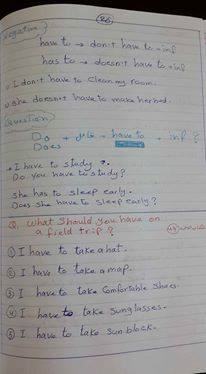 Negation
have to → don't have to + inf
has to → doesn't have to + inf
I don't have to clean my room.
She doesn't have to make her bed.
Question
Do
Does + + have to + inf ?
I have to study ?.
Do you have to study?
She has to sleep early.
Does she have to sleep early?
Q. What should you have on
a field trip?
① I have to take a hat.
② I have to take a map.
③ I have to take Comfortable Shoes.
④ I have to take sunglasses.
⑤ I have to take sun block.